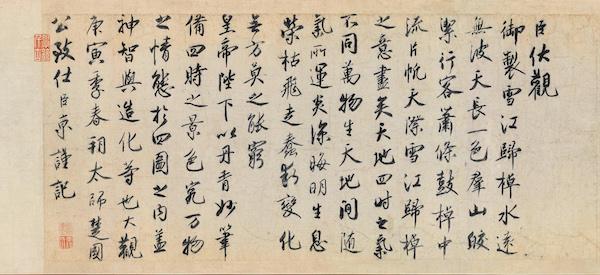 臣伏觀
御製雪江歸棹水遠
無波天長一色羣山皎
潔行客蕭條鼓棹中
流片帆天際雪江歸棹
之意盡矣天地四時之氣
不同萬物生天地間隨
氣所運炎涼晦明生息
榮枯飛走蠢動變化
無方莫之能窮
皇帝陛下以丹青妙筆
備四時之景色究万物
之情態於四圖之內蓋
神智與造化等也大觀
庚寅季春朔太師楚國
公致仕臣京謹記